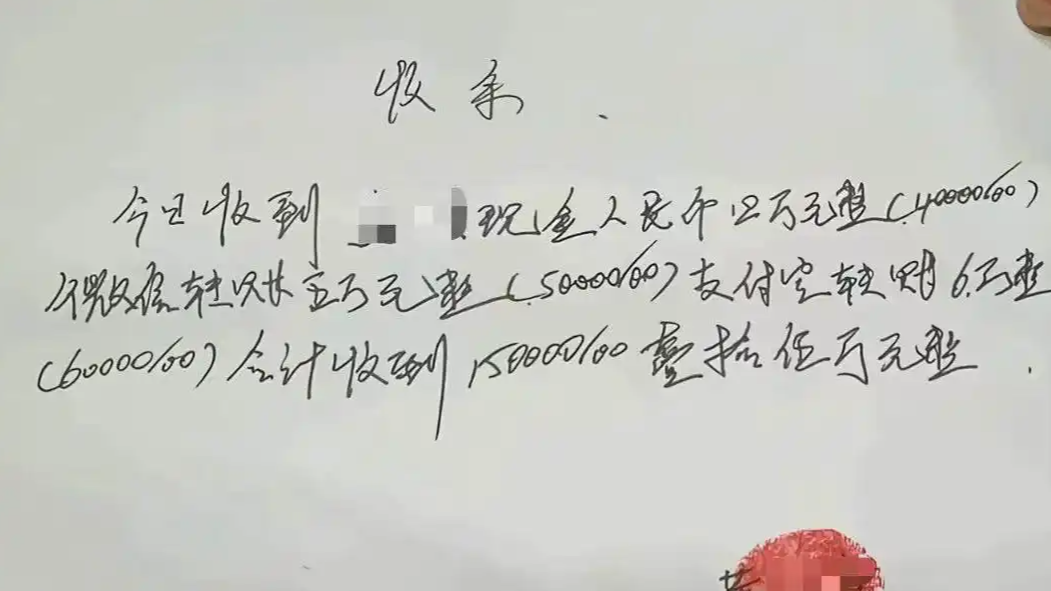 收条
今日收到 现金人民币四万元整(40000/00)
微信转账五万元整(50000/00)支付宝转账6万整
(60000/00)合计收到150000/00壹拾伍万元整.